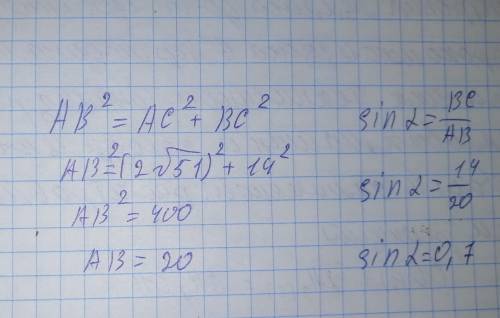 AB² = AC² + BC²
AB² = (2√51)² + 14²
AB² = 400
AB = 20
sin α = BC/AB
sin α = 14/20
sin α = 0,7